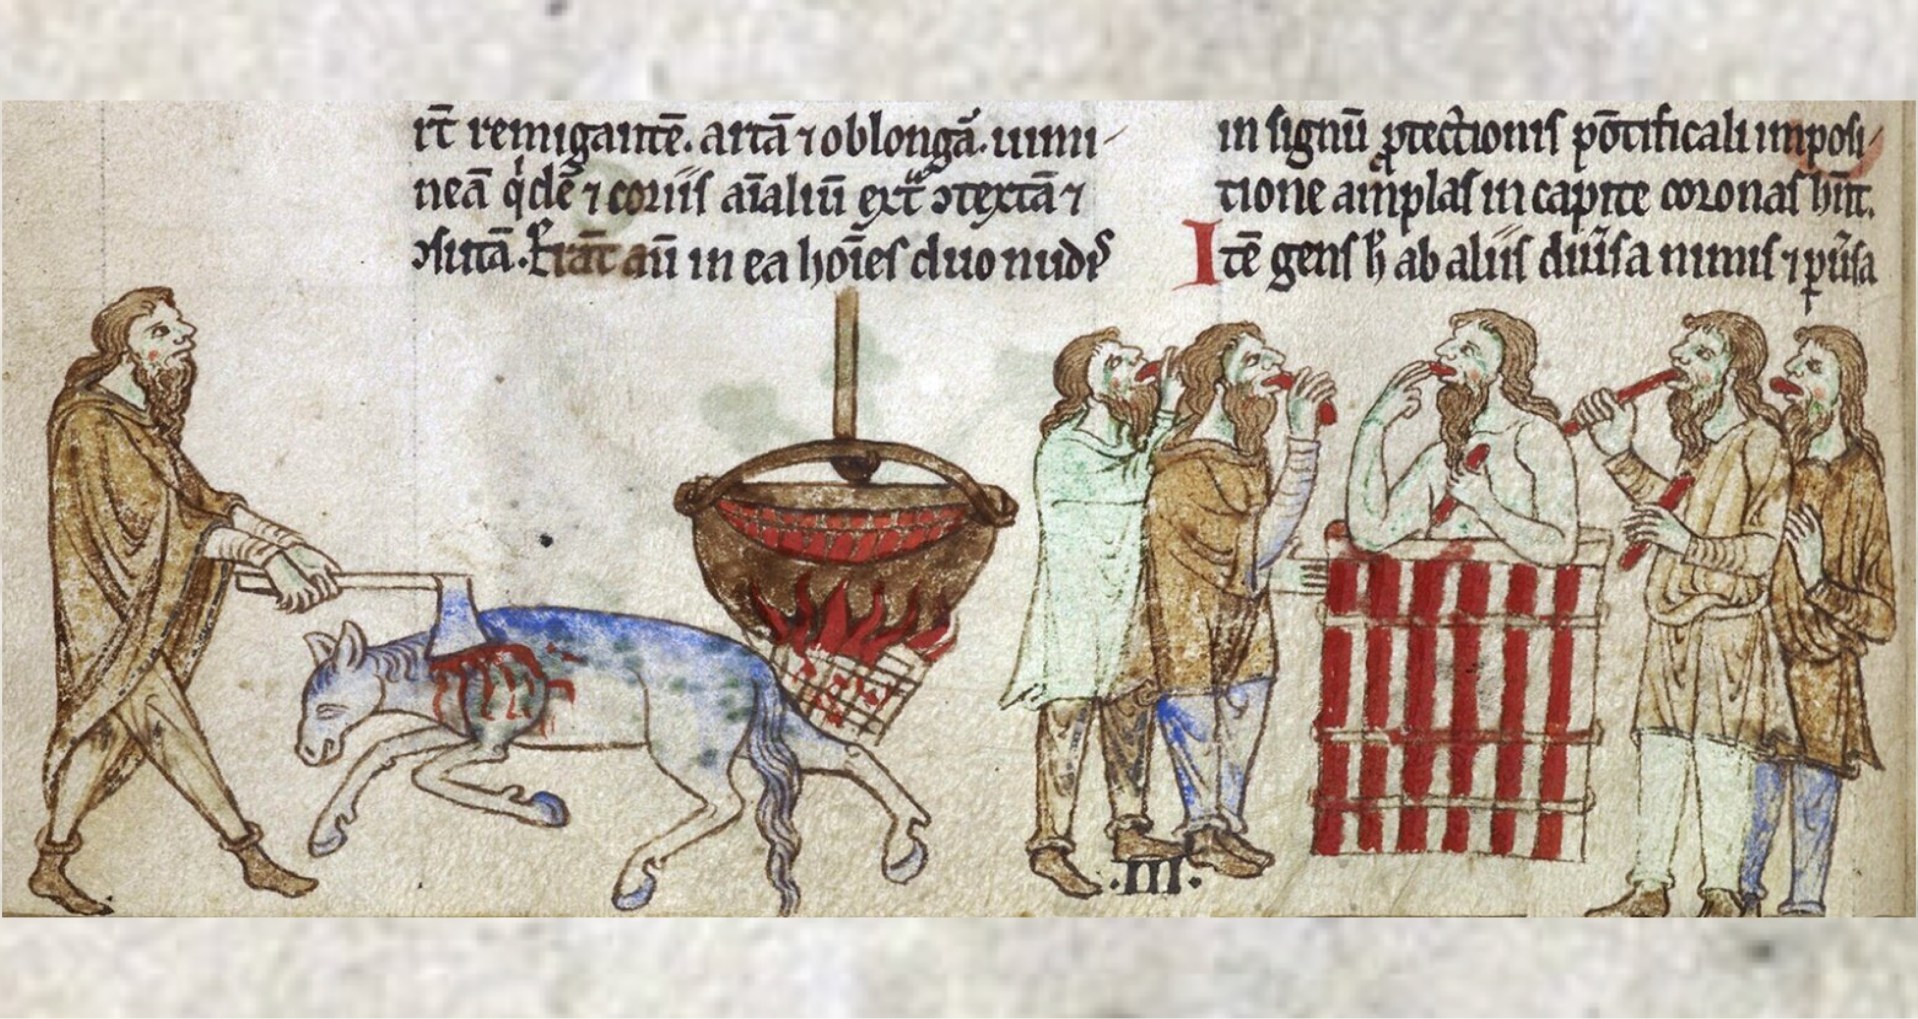 rt̄ remigantē. artā ⁊ oblongā. uimi
neā qͥdē ⁊ coriis aīaliū ext ꝯtextā ⁊
ꝯsutā. Erāt aū in ea hoīes duo nudis
in signū ꝓtectionis pōtificali imposi
tione amplas in capite coronas hn̄t.
Itē gens h̄ ab aliis diuͥsa nimis ⁊ ꝑuͥsa
.III.